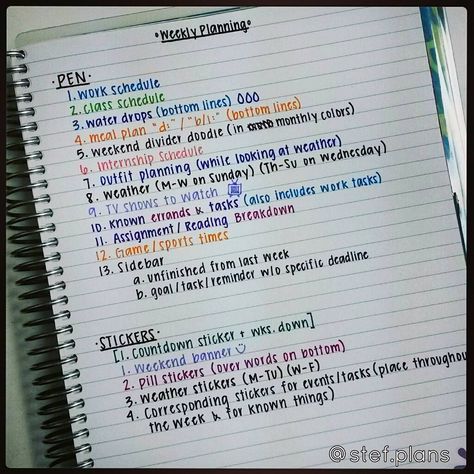 •Weekly Planning•
•PEN:
1. WORK schedule
2. CLASS schedule
3. water drops (bottom lines)
4. meal plan "d:"/"b/l:" (bottom lines)
5. weekend divider doodle (in monthly colors)
6. Internship Schedule
7. Outfit planning (while looking at weather)
8. weather (M-W on Sunday) (Th-Su on Wednesday)
9. TV shows to watch
10. Known errands & tasks (also includes work tasks)
11. Assignment / Reading Breakdown
12. Game / sports times
13. Sidebar
a. unfinished from last week
b. goal/task/reminder w/o specific deadline
•STICKERS•
[1. Countdown sticker + wks. down]
1. Weekend banner
2. Pill stickers (over words on bottom)
3. Weather stickers (M-TU) (W-F)
4. Corresponding stickers for events/tasks (place throughout
the week & for known things)
@stef.plans